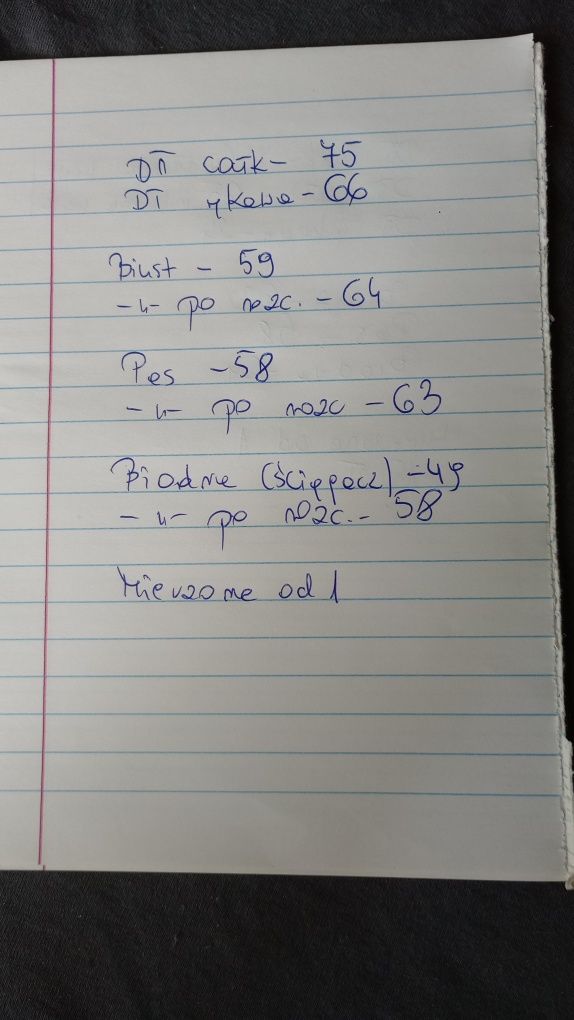 Dł całk - 75
Dł rękawa - 66
Biust - 59
-"- po rozc. - 64
Pas - 58
-"- po rozc - 63
Biodra (ściągacz) - 49
-"- po rozc. - 58
Mierzone od 1